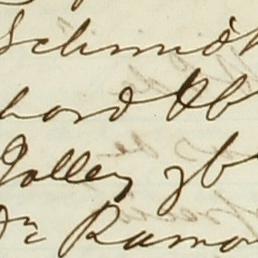 Schmidt
hard Ab
Polley yb
Dr Ramo